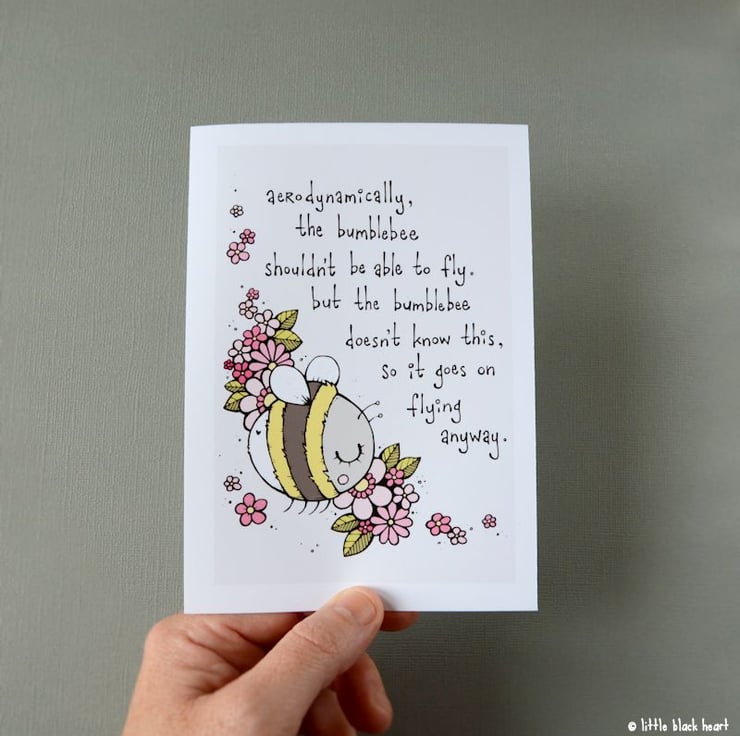 aerodynamically,
the bumblebee
shouldn't be able to fly.
but the bumblebee
doesn't know this,
so it goes on
flying
anyway.
© little black heart